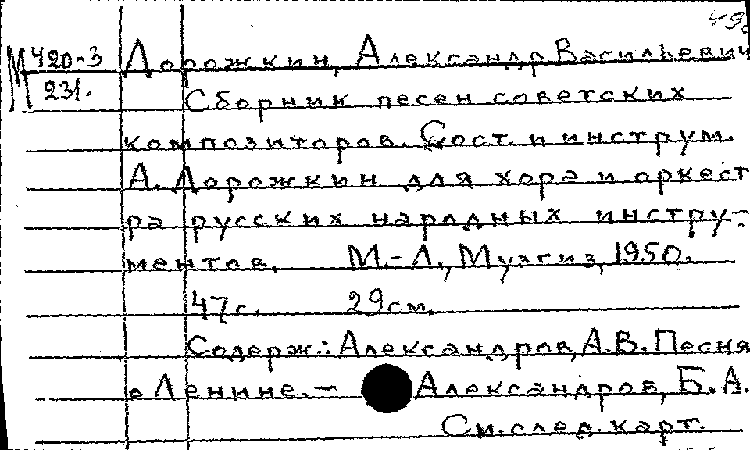 М 420-3 Дорожкин, Александр Васильевич
231.
Сборник песен советских
композиторов. Сост. и инструм.
А. Дорожкин для хора и оркест
ра русских народных инстру-
ментов. М.-Л., Музгиз, 1950.
47 с. 29 см.
Содерж.: Александров, А.В. Песня
о Ленине. — Александров, Б. А.
См. след. карт.